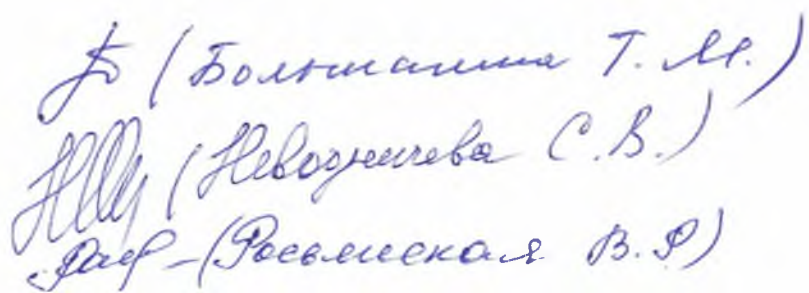 (Большанина Т. М.)
(Неводничева С. В.)
(Росомская В. Р)